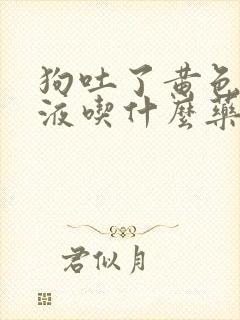 狗吐了黄色
液喫什麼藥
君似月